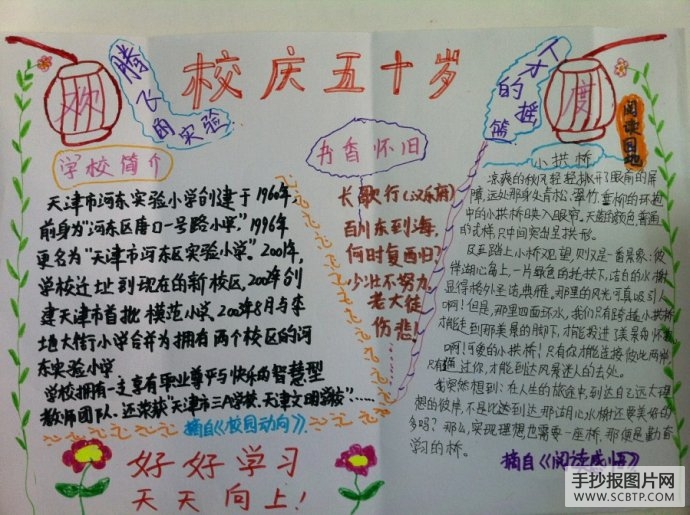 校庆五十岁
欢
度
腾飞的实验
人才的摇篮
学校简介
天津市河东实验小学创建于1960年,
前身为“河东区唐口一号路小学”。1996年
更名为“天津市河东区实验小学”。2001年,
学校迁址到现在的新校区,2002年创
建天津市首批模范小学,2002年8月与李
地大街小学合并为拥有两个校区的河
东实验小学
学校拥有一支享有职业尊严与快乐的智慧型
教师团队,还荣获“天津市三A学校、天津文明学校”……
摘自《校园动向》
好好学习
天天向上!
书香怀旧
长歌行(汉乐府)
百川东到海,
何时复西归?
少壮不努力,
老大徒
伤悲!
阅读园地
小拱桥
凉爽的秋风轻轻掀开了眼前的屏
障,远处那身处青松、翠竹、垂柳的环抱
中的小拱桥映入眼帘。天蓝的颜色,普通
的式样,只中间突出呈拱形。
及至踏上小桥观望,则又是一番景象:彼
岸湖心岛上,一片黛色的托衬下,洁白的水榭
显得格外圣洁、典雅。那里的风光可真吸引人
啊!但是,那里四面环水,我们只有跨越小拱桥
才能走到那美景的脚下,才能投进了美景的怀抱
啊!可爱的小拱桥!只有你才能连接彼此两岸,
只有通过你,才能到达风景迷人的去处。
我突然想到:在人生的旅途中,到达自己远大理
想的彼岸,不是比达到达那湖心水榭还要美好的
多吗?那么,实现理想也需要一座桥,那便是勤奋
学习的桥。
摘自《阅读感悟》
手抄报图片网
WWW.SCBTP.COM